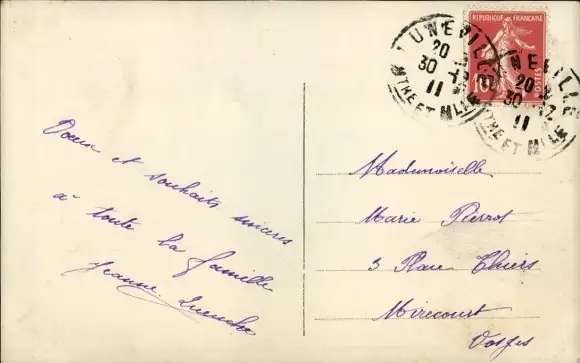 Voeux et souhaits sincères
à toute la famille
Jeanne
RÉPUBLIQUE FRANÇAISE
10
POSTES
LUNEVILLE
20
30 -12
11
MTHE ET MLLE
NEVILLE
20
30 -12
11
MTHE ET MLLE
Mademoiselle
Marie Pierrot
3 Place Thiers
Mirecourt
Vosges